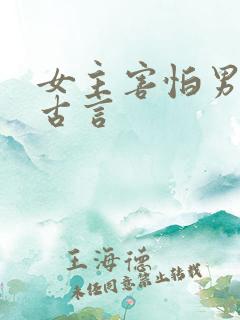 女主害怕男
古言
王海德
未经同意禁止转载